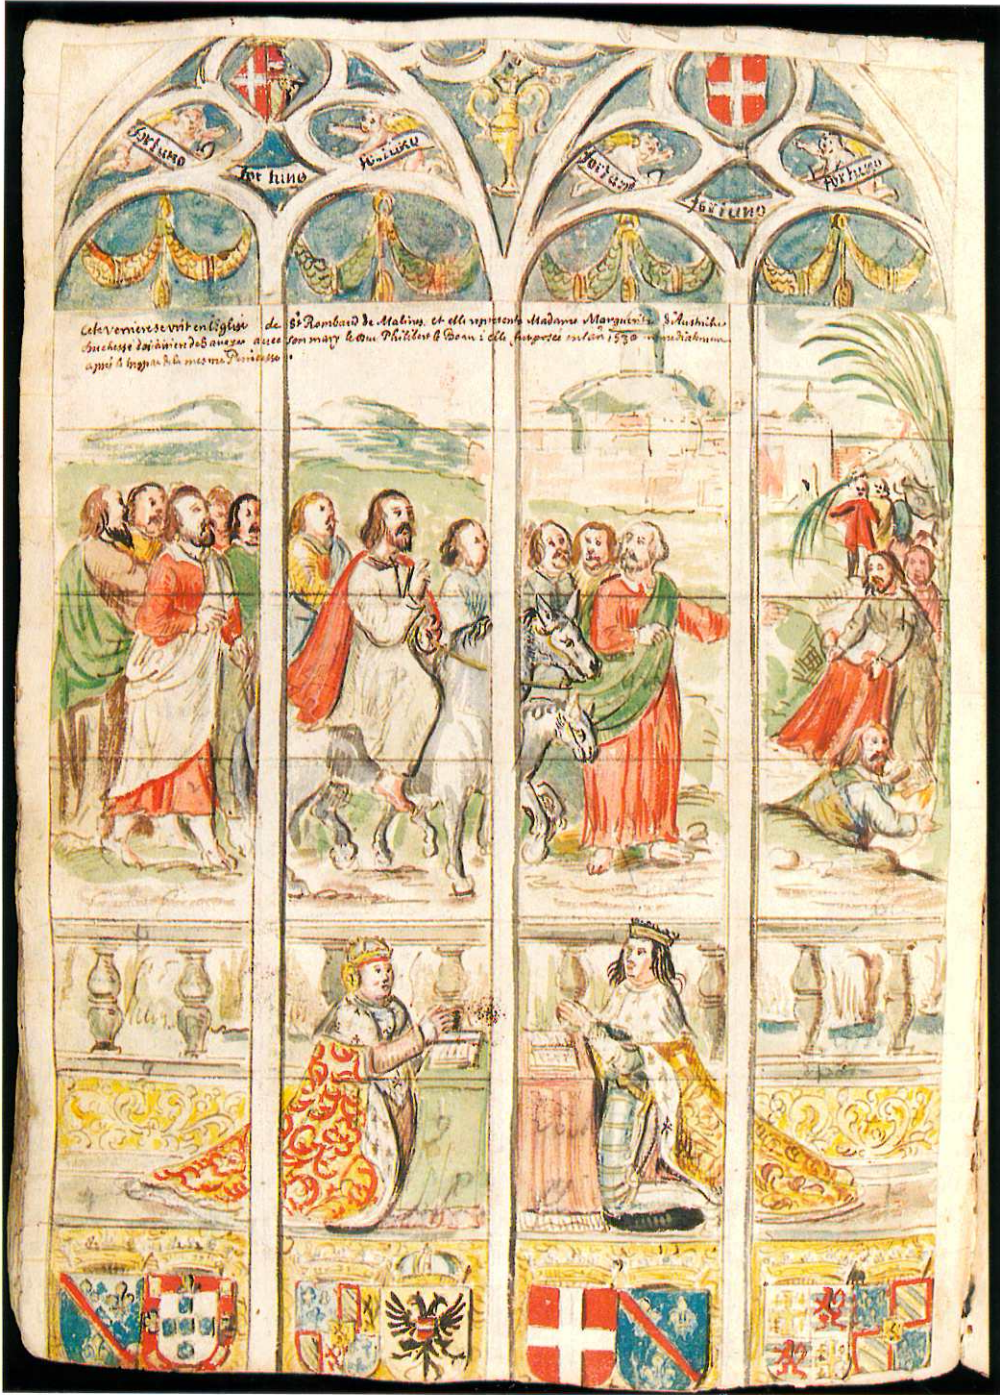 fortuno
for tuno
fortuno
fortuno
fortuno
fortuno
Ceste verriere se voit en l'Eglise de St Rombaud de Malines, et elle represente Madame Marguerite d'Austriche
Duchesse doüairiere de Savoye avec son mary le Duc Philibert le Beau: elle fut posée en l'an 1530 immediatement
après le trespas de la mesme Princesse.